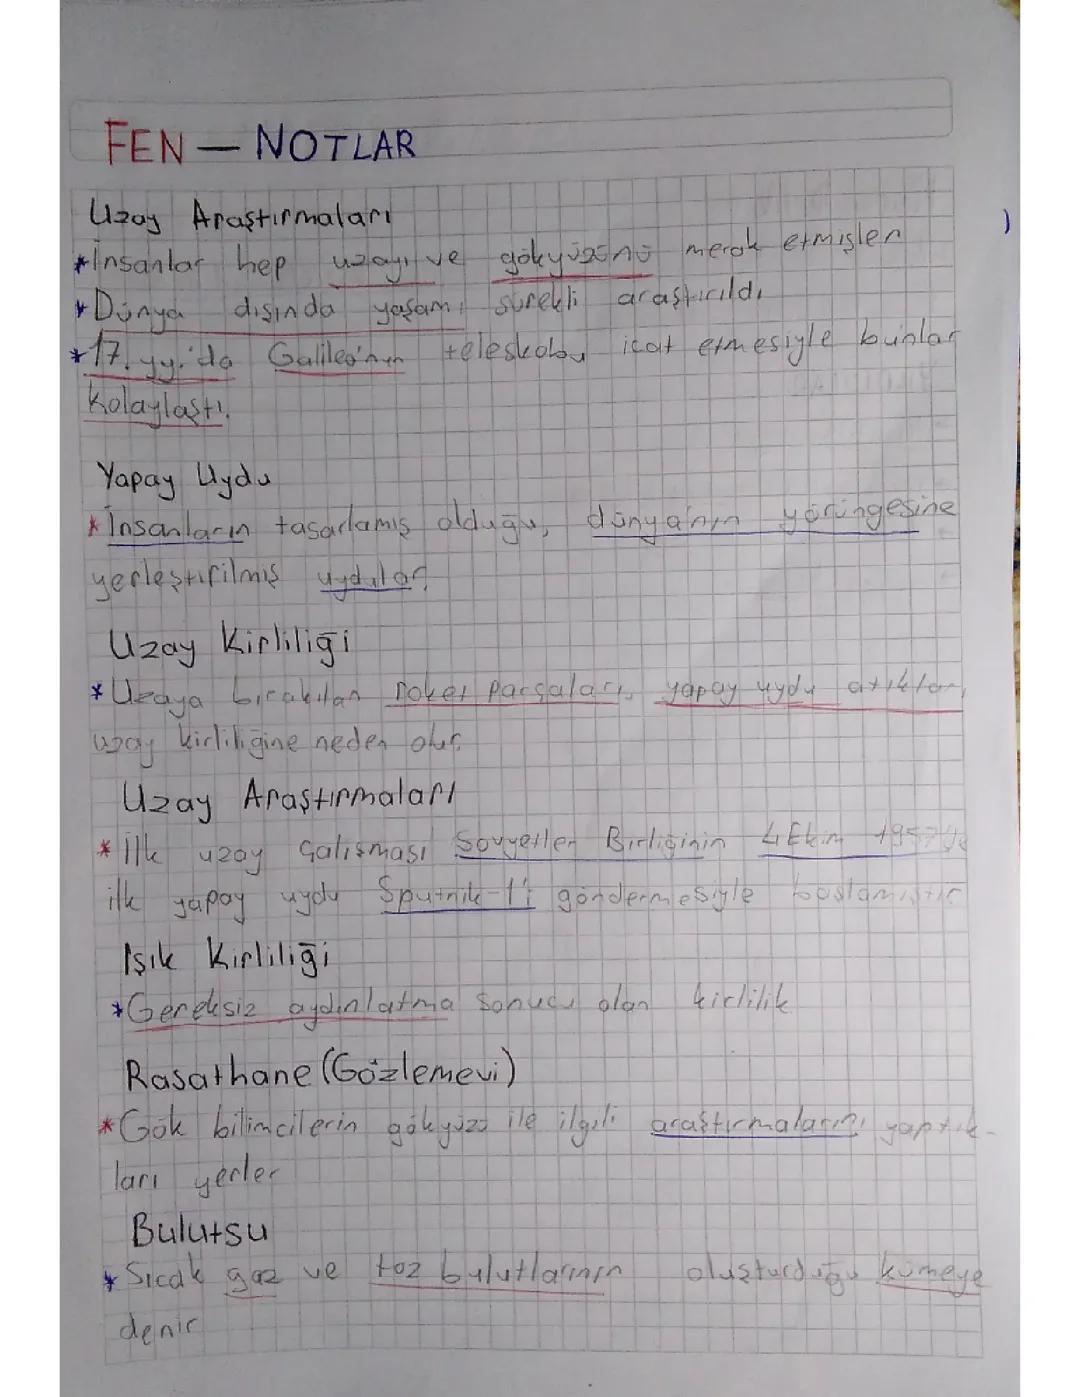 FEN — NOTLAR
Uzay Araştırmaları
*İnsanlar hep uzayı ve gökyüzünü merak etmişler
*Dünya dışında yaşamı sürekli araştırıldı
*17. yy.'da Galileo'nun teleskobu icat etmesiyle bunlar
kolaylaştı.
Yapay Uydu
*İnsanların tasarlamış olduğu, dünya'nın yörüngesine
yerleştirilmiş uydular.
Uzay Kirliliği
*Uzaya bırakılan roket parçaları, yapay uydu atıkları,
uzay kirliliğine neden olur.
Uzay Araştırmaları
*İlk uzay çalışması Sovyetler Birliğinin 4 Ekim 1957'de
ilk yapay uydu Sputnik-1'i göndermesiyle başlamıştır
Işık Kirliliği
*Gereksiz aydınlatma sonucu olan kirlilik
Rasathane (Gözlemevi)
*Gök bilimcilerin gökyüzü ile ilgili araştırmalarını yaptık-
ları yerler
Bulutsu
*Sıcak gaz ve toz bulutlarının oluşturduğu kümeye
denir